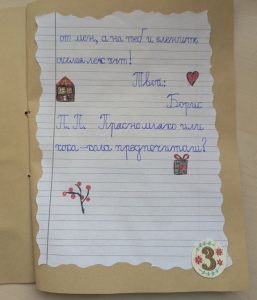 от мен, а на теб и елените
весела лек път!
Твой:
Борис
П. П. Прясно мляко или
кока-кола предпочиташ?
3